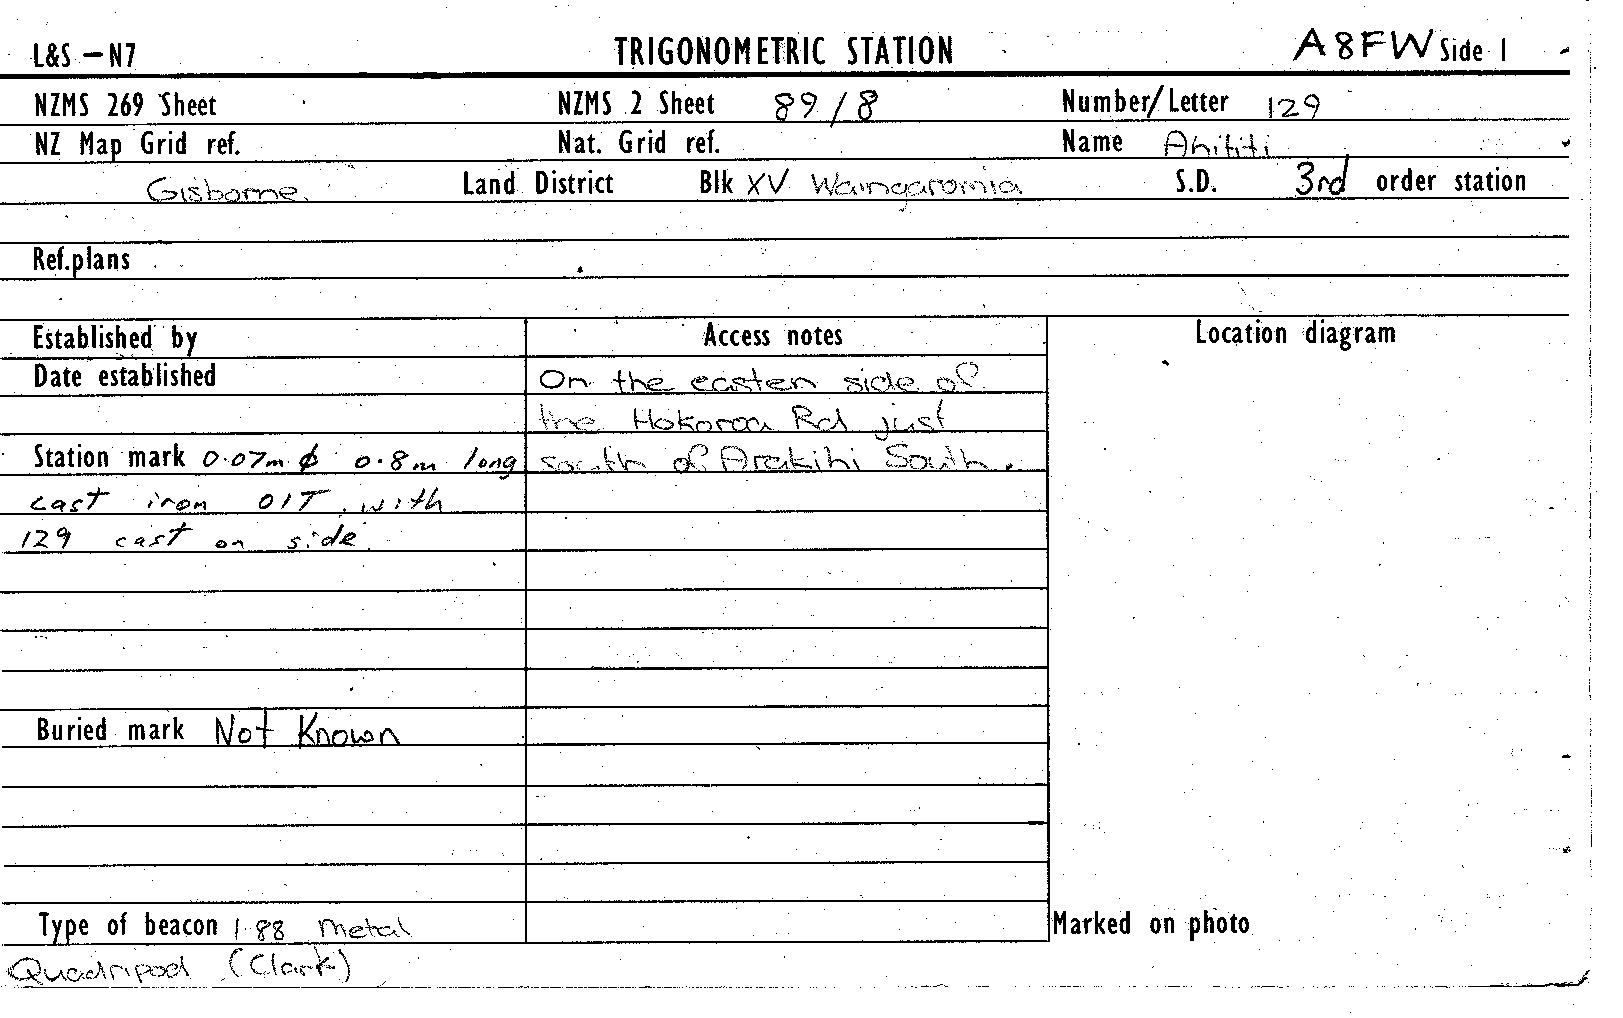 L&S – N7 TRIGONOMETRIC STATION A8FW Side 1
NZMS 269 Sheet NZMS 2 Sheet 89/8 Number/Letter 129
NZ Map Grid ref. Nat. Grid ref. Name Ahititi
Gisborne Land District Blk XV Waingaromia S.D. 3rd order station
Ref.plans
Established by
Date established
Station mark 0.07m ϕ 0.8m long
cast iron OIT with
129 cast on side
Buried mark Not Known
Type of beacon 1.88 metal
Quadripod (Clark)
Access notes
On the easten side of
the Hokoroa Rd just
south of Arakihi South.
Location diagram
Marked on photo